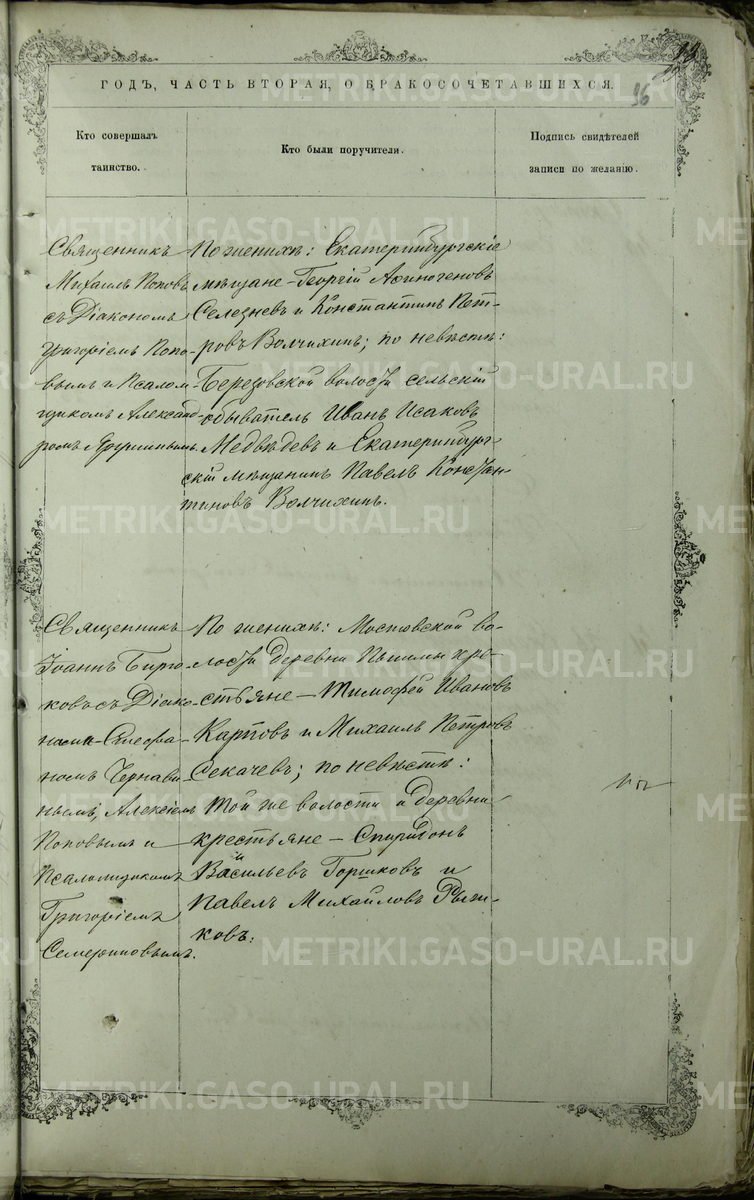 96
ГОДЪ, ЧАСТЬ ВТОРАЯ, О БРАКОСОЧЕТАВШИХСЯ.
Кто совершалъ
таинство.
Кто были поручители.
Подпись свидѣтелей
записи по желанію.
Священникъ
Михаилъ Поповъ
съ Діакономъ
Григоріемъ Попо-
вымъ и Псалом-
щикомъ Александ-
ромъ
По женихѣ: Екатеринбургскіе
мѣщане – Георгій Афиногеновъ
Селезневъ и Константинъ Пет-
ровъ Волчихинъ; по невѣстѣ:
Березовской волости сельскій
обыватель Иванъ Исаковъ
Медвѣдевъ и Екатеринбург-
скій мѣщанинъ Павелъ Констан-
тиновъ Волчихинъ.
Священникъ
Іоаннъ Бирю-
ковъ съ Діако-
нами
номъ Чернави-
нымъ, Алексіемъ
Поповымъ и
Псаломщикомъ
Григоріемъ
По женихѣ: Мостовской во-
лости деревни Пышмы кре-
стьяне – Тимофей Ивановъ
Карповъ и Михаилъ Петровъ
Секачевъ; по невѣстѣ:
той же волости и деревни
крестьяне – Спиридонъ
Васильевъ Горшковъ и
Павелъ Михайловъ Рыжи-
ковъ.
METRIKI.GASO-URAL.RU